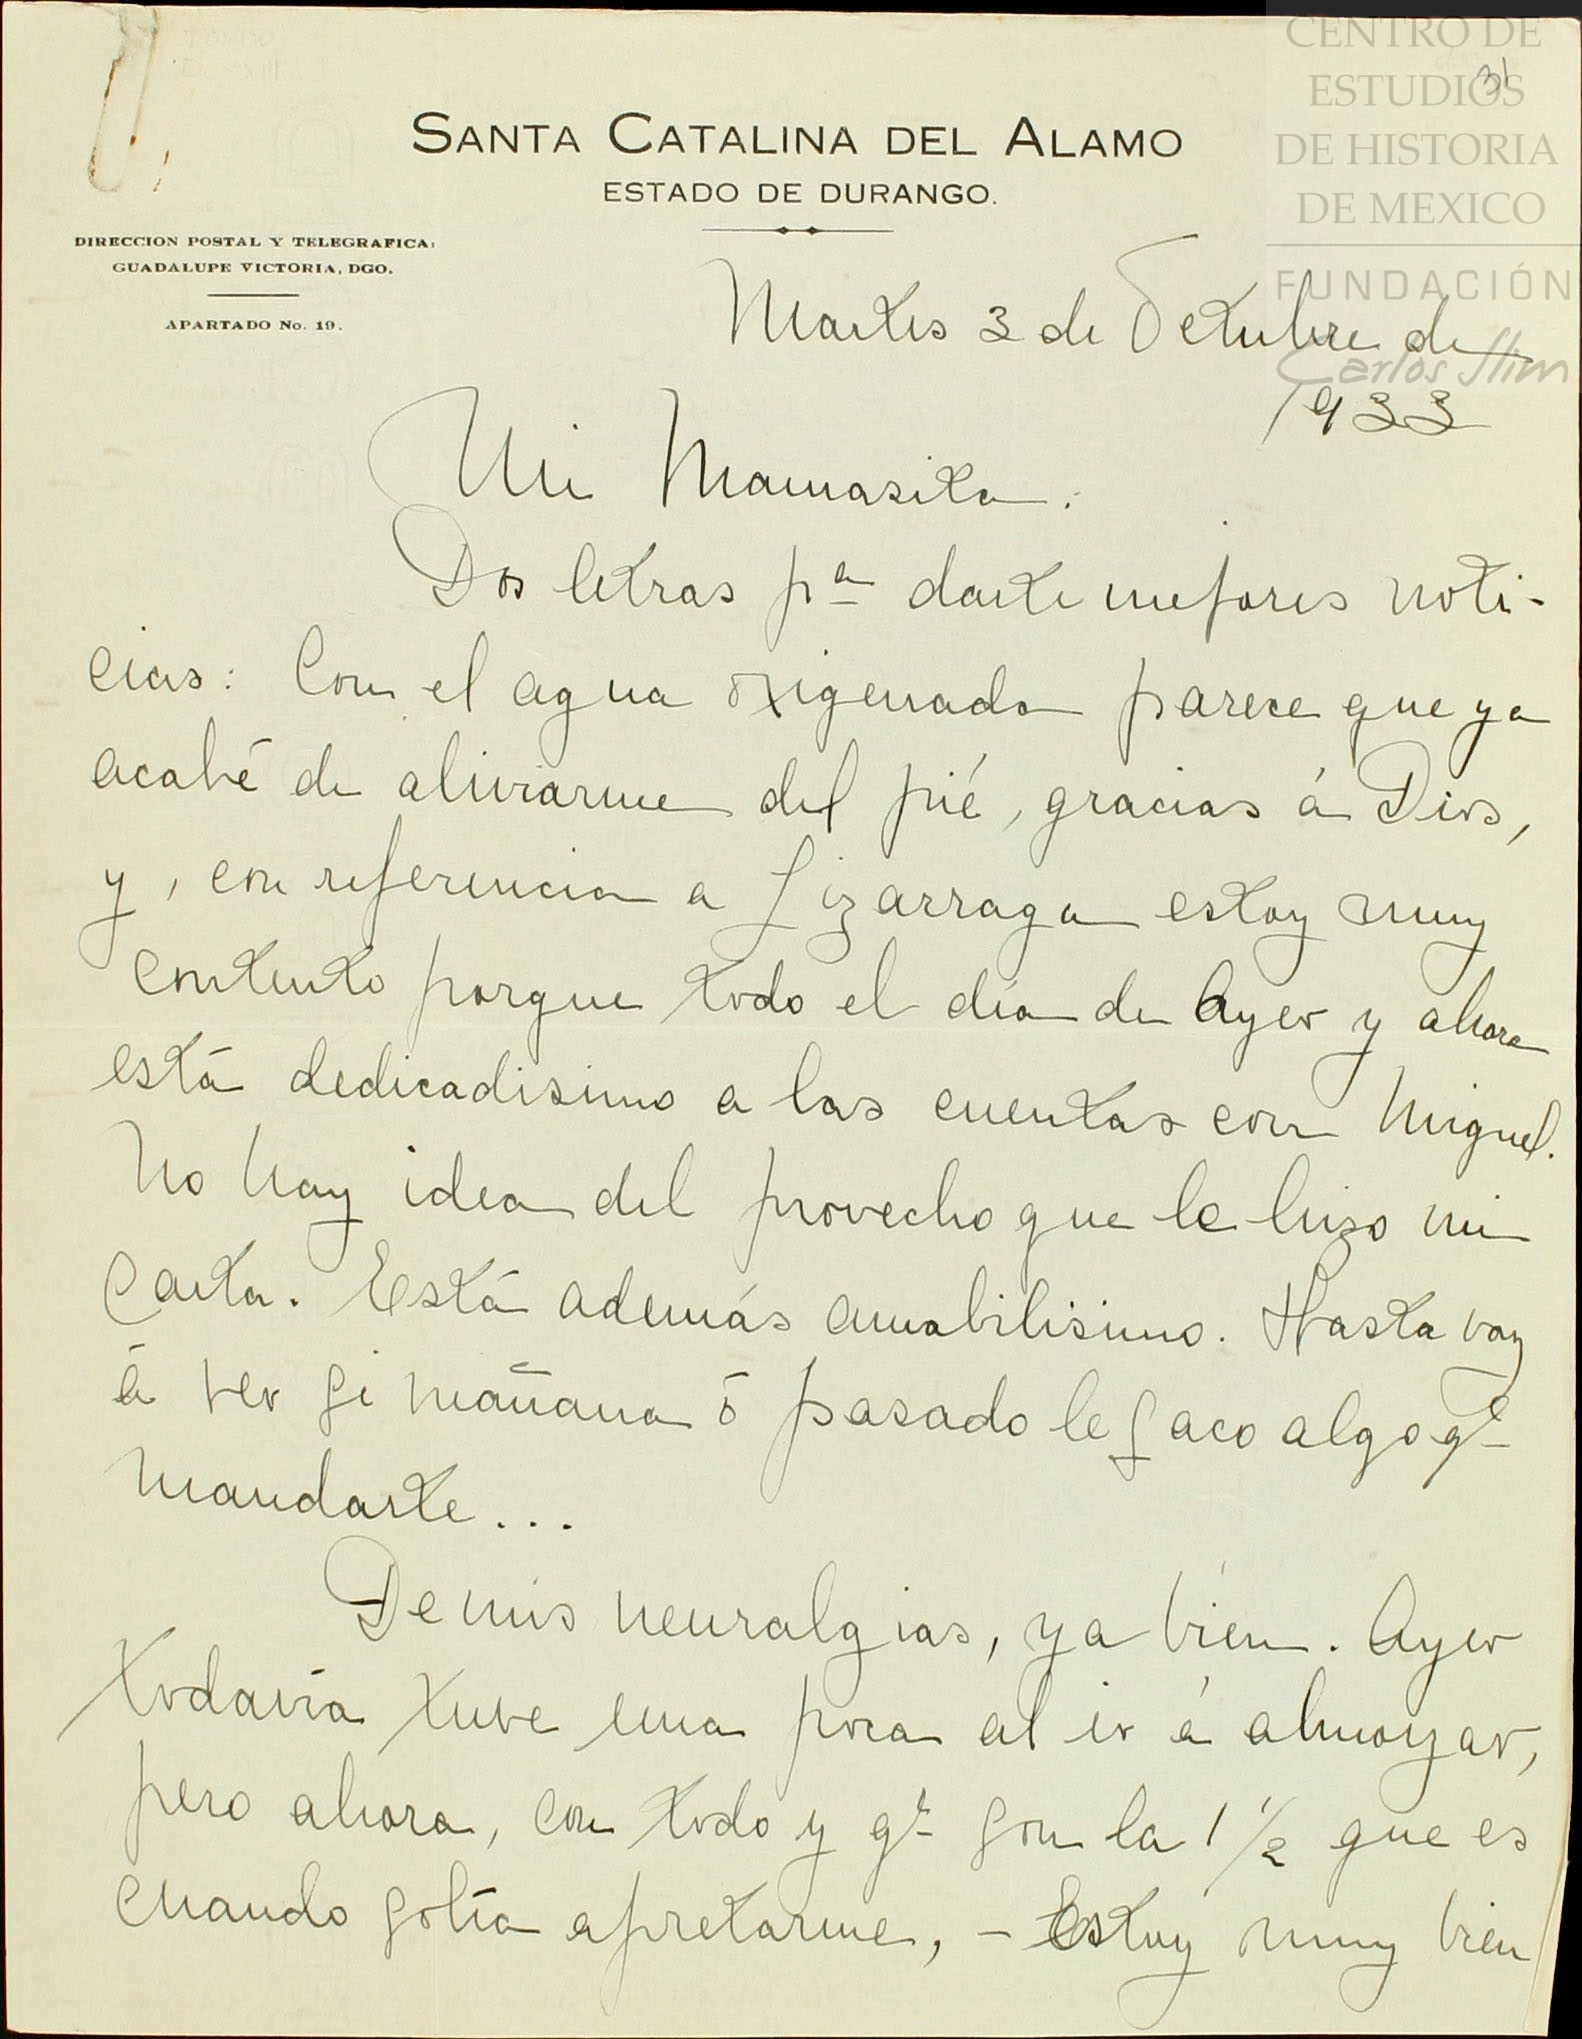 CENTRO DE
ESTUDIOS
DE HISTORIA
DE MEXICO
FUNDACIÓN
Carlos Slim
31
SANTA CATALINA DEL ALAMO
ESTADO DE DURANGO.
DIRECCION POSTAL Y TELEGRAFICA:
GUADALUPE VICTORIA, DGO.
APARTADO No. 19.
Martes 3 de Octubre de
1933
Mi Mamasita:
Dos letras pa darte mejores noti-
cias: Con el agua oxigenada parece que ya
acabé de aliviarme del pié, gracias á Dios,
y, con referencia a Lizarraga estoy muy
contento porque todo el día de ayer y ahora
está dedicadisimo a las cuentas con Miguel.
No hay idea del provecho que le hizo mi
carta. Está además amabilisimo. Hasta voy
á ver si mañana ó pasado le saco algo qe
mandarte...
De mis neuralgias, ya bién. Ayer
todavía tuve una poca al ir á almorzar,
pero ahora, con todo y qe son la 1 1/2 que es
cuando solía apretarme, - Estoy muy bien